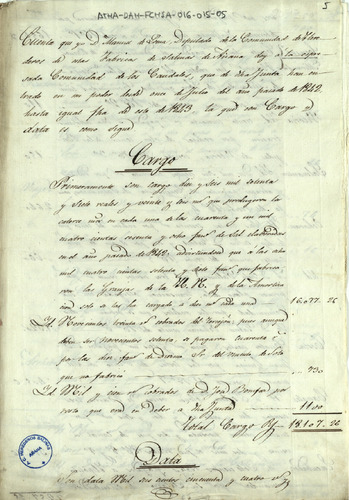 ATHA-DAH-FCHSA-016-015-05
5
Cuenta que yo D. Manuel de Luna Deputado de la Comunidad de Here
deros de Reales Fabricas de Salinas de Añana doy a la expre
sada Comunidad de los Caudales, que de dha Junta han en
trado en mi poder desde once de Julio del año pasado de 1842,
hasta igual fha de este de 1843, la que con Cargo y
data es como sigue
Cargo
Primeramente son cargo diez y seis mil setenta
y siete reales y veinte y seis mrs que produgeron los
catorce mrs en cada una de las cuarenta y un mil
cuatro cientas sesenta y ocho fans de Sal elavoradas
en el año pasado de 1842, advirtiendose que á las
mil cuatro cientas setenta y siete fans que fabrica
ron las Granjas de la H. N. y de la Amostra
con solo se les ha cargado a dos mrs cada una 16077.. 26
Id. Novecientos treinta rs cobrados del
deben ser novecientos setenta se pagaron cuarenta
por las dos fans de
que no fabricó 930
Id. Mil y cien rs cobrados de D. José Bonifaz por
porte que era en Deber a dha Junta 1100
Total Cargo Rs 18107.. 26
Data
Son Data Mil dos cientos cincuenta y cuatro rs
SALINAS
AÑANA